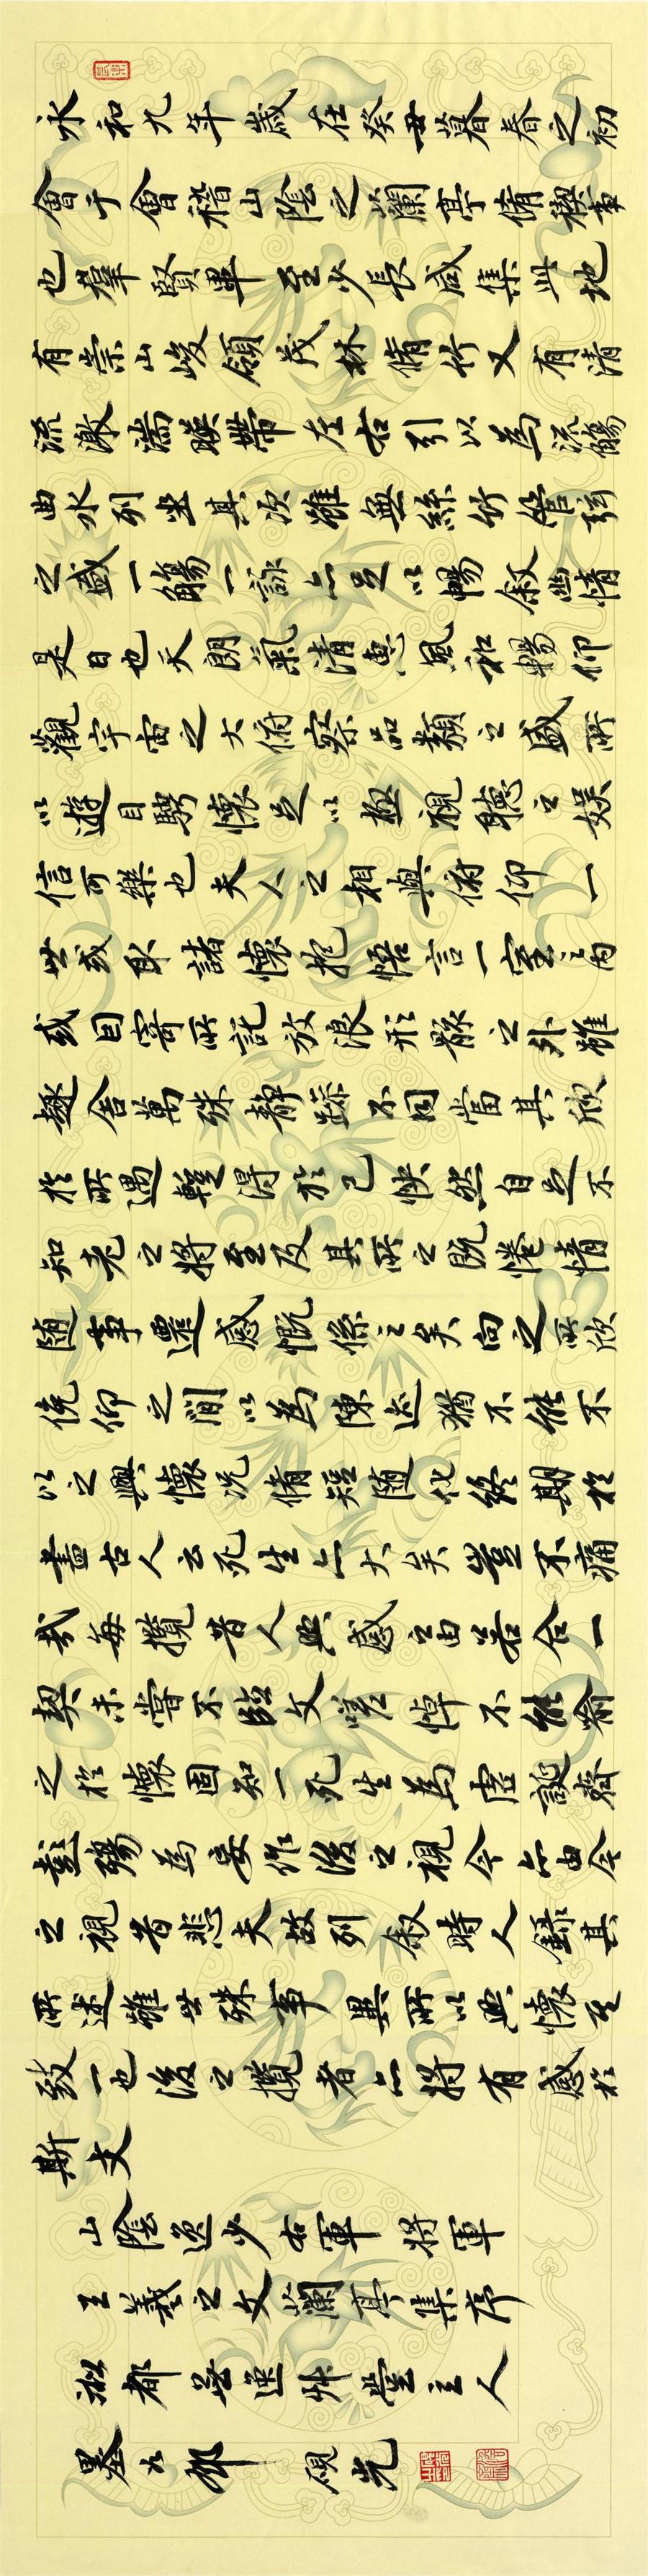 永和九年歲在癸丑暮春之初
會于會稽山陰之蘭亭脩禊事
也群賢畢至少長咸集此地
有崇山峻領茂林脩竹又有清
流激湍暎帶左右引以為流觴
曲水列坐其次雖無絲竹管弦
之盛一觴一詠亦足以暢叙幽情
是日也天朗氣清惠風和暢仰
觀宇宙之大俯察品類之盛所
以遊目騁懷足以極視聽之娛
信可樂也夫人之相與俯仰一
世或取諸懷抱悟言一室之內
或因寄所託放浪形骸之外雖
趣舍萬殊靜躁不同當其欣
於所遇暫得於己怏然自足不
知老之將至及其所之既惓情
隨事遷感慨係之矣向之所欣
俛仰之間以為陳迹猶不能不
以之興懷況脩短隨化終期於
盡古人云死生亦大矣豈不痛
哉每攬昔人興感之由若合一
契未嘗不臨文嗟悼不能喻
之於懷固知一死生為虛誕齊
彭殤為妄作後之視今亦由今
之視昔悲夫故列叙時人錄其
所述雖世殊事異所以興懷其
致一也後之攬者亦將有感於
斯文
山陰逸少右軍將軍
王羲之文蘭亭集序
都逸堂主人
墨硯光